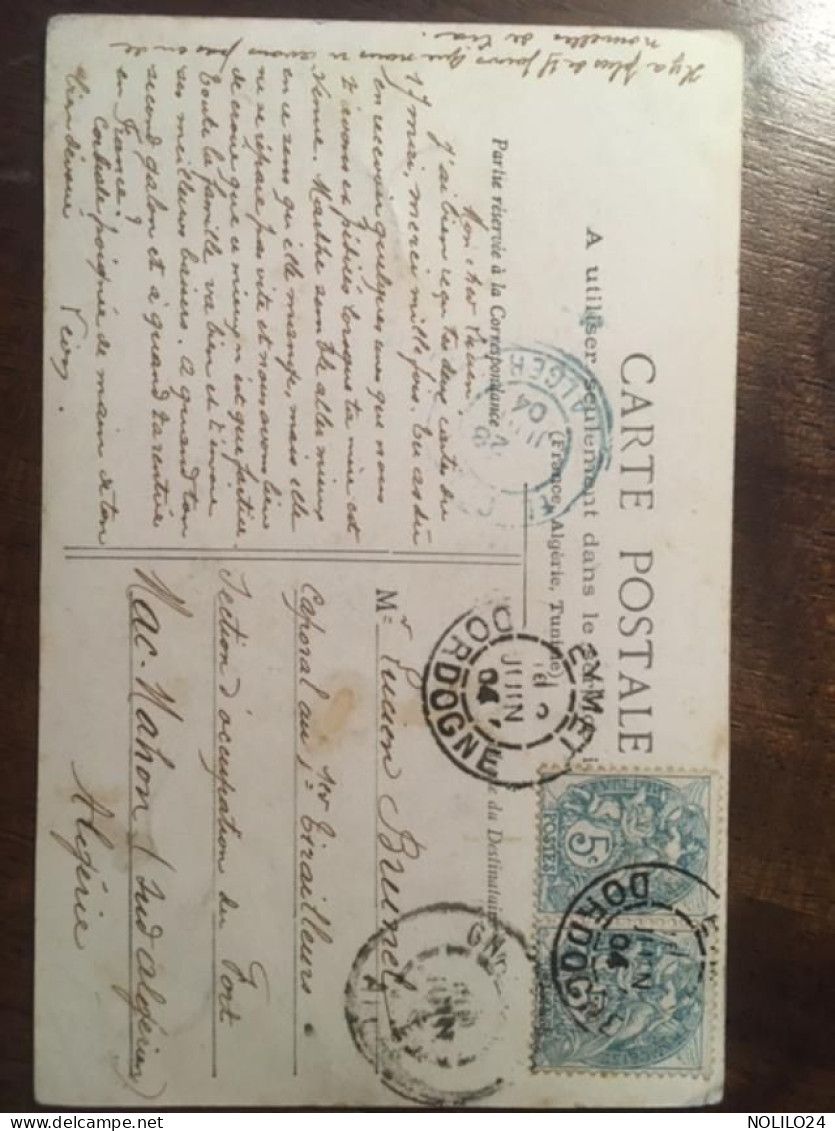 CARTE POSTALE
A utiliser seulement dans le
(France, Algérie, Tunisie)
Partie réservée à la Correspondance
du Destinataire
Il y a plus de 15 jours que nous n'avons pas eu de
nouvelles de
Mon cher Lucien
J'ai bien reçu tes deux cartes du
17 mai, merci mille fois. Tu as dû
en recevoir quelques unes que nous
t'avons expédiées lorsque ta mère est
venue. Marthe semble aller mieux
en ce sens qu'elle mange, mais elle
ne se répare pas vite et nous avons lieu
de croire que ce mieux n'est que factice.
Toute la famille va bien et t'envoie
ses meilleurs baisers. A quand ton
second galon et à quand ta rentrée
en France ?
Cordiale poignée de main de ton
bien dévoué
Mr Lucien Brunel
Caporal au 1er Tirailleurs
Section d'occupation du Fort
Mac-Mahon (Sud algérien)
Algérie
EYMET
18
JUIN
04
DORDOGNE
ALGER
28
JUIN
04
5c
POSTES
JUIN
04
DORDOGNE
NOLILO24